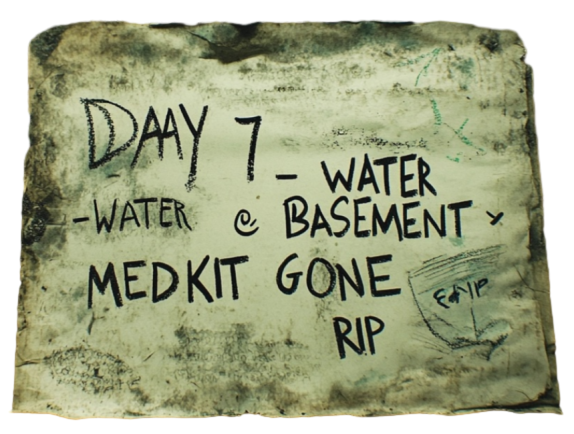 DAAY 7 - WATER
-WATER @ BASEMENT
MEDKIT GONE
RIP